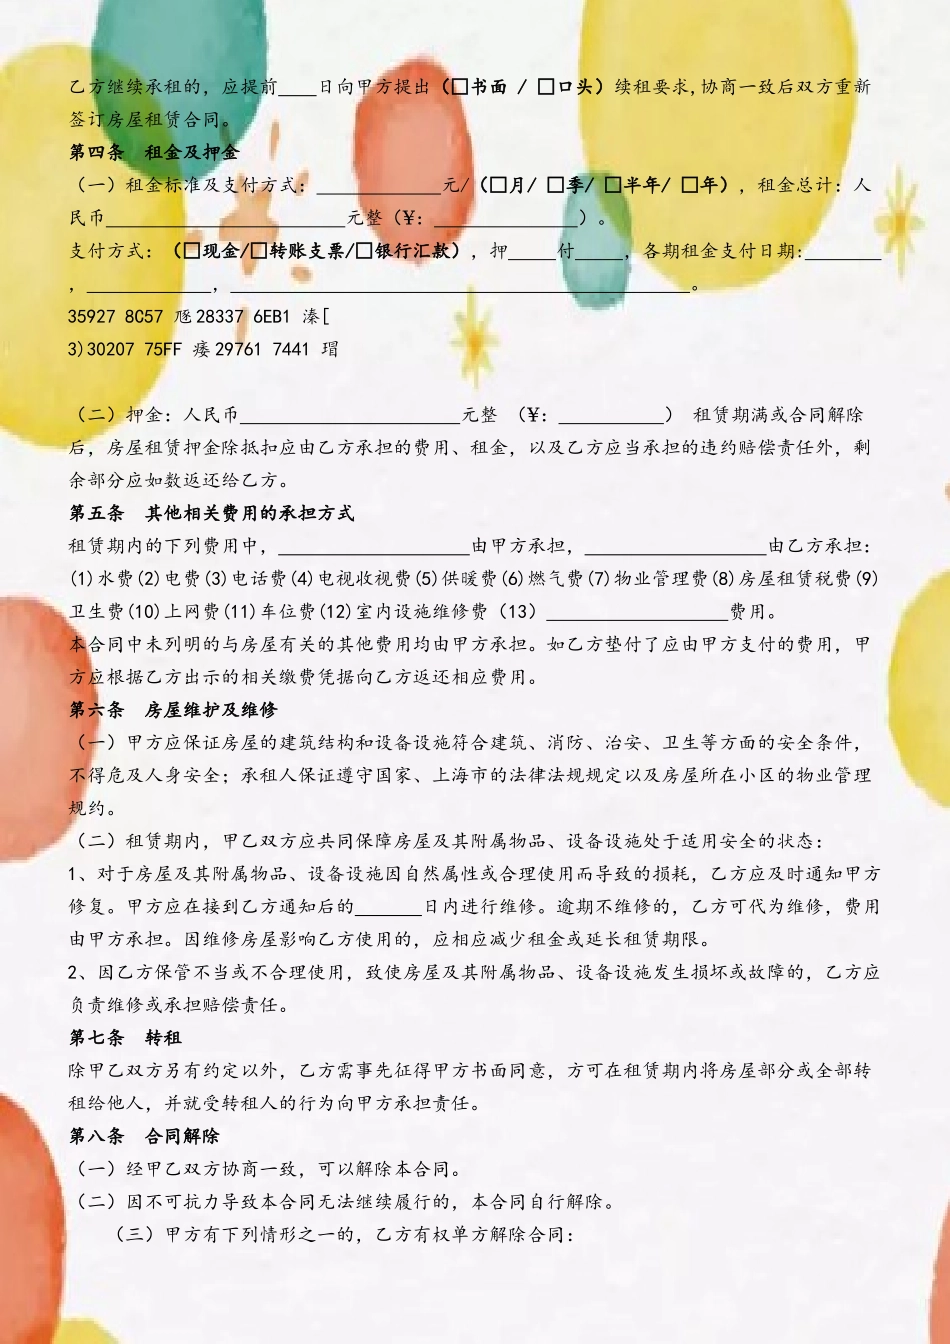 乙方继续承租的，应提前____日向甲方提出（□书面 / □口头）续租要求,协商一致后双方重新
签订房屋租赁合同。
第四条 租金及押金
（一）租金标准及支付方式：_____________元/（□月/ □季/ □半年/ □年），租金总计：人
民币_________________________元整（¥：_______________）。
支付方式：（□现金/□转账支票/□银行汇款），押_____付_____，各期租金支付日期:________
，_____________，________________________________________________。
35927 8C57 豗28337 6EB1 溱[
3)30207 75FF 瘘29761 7441 瑁
（二）押金：人民币_______________________元整 （¥：___________） 租赁期满或合同解除
后，房屋租赁押金除抵扣应由乙方承担的费用、租金，以及乙方应当承担的违约赔偿责任外，剩
余部分应如数返还给乙方。
第五条 其他相关费用的承担方式
租赁期内的下列费用中，____________________由甲方承担，___________________由乙方承担：
(1)水费(2)电费(3)电话费(4)电视收视费(5)供暖费(6)燃气费(7)物业管理费(8)房屋租赁税费(9)
卫生费(10)上网费(11)车位费(12)室内设施维修费（13）___________________费用。
本合同中未列明的与房屋有关的其他费用均由甲方承担。如乙方垫付了应由甲方支付的费用，甲
方应根据乙方出示的相关缴费凭据向乙方返还相应费用。
第六条 房屋维护及维修
（一）甲方应保证房屋的建筑结构和设备设施符合建筑、消防、治安、卫生等方面的安全条件，
不得危及人身安全；承租人保证遵守国家、上海市的法律法规规定以及房屋所在小区的物业管理
规约。
（二）租赁期内，甲乙双方应共同保障房屋及其附属物品、设备设施处于适用安全的状态：
1、对于房屋及其附属物品、设备设施因自然属性或合理使用而导致的损耗，乙方应及时通知甲方
修复。甲方应在接到乙方通知后的_______日内进行维修。逾期不维修的，乙方可代为维修，费用
由甲方承担。因维修房屋影响乙方使用的，应相应减少租金或延长租赁期限。
2、因乙方保管不当或不合理使用，致使房屋及其附属物品、设备设施发生损坏或故障的，乙方应
负责维修或承担赔偿责任。
第七条 转租
除甲乙双方另有约定以外，乙方需事先征得甲方书面同意，方可在租赁期内将房屋部分或全部转
租给他人，并就受转租人的行为向甲方承担责任。
第八条 合同解除
（一）经甲乙双方协商一致，可以解除本合同。
（二）因不可抗力导致本合同无法继续履行的，本合同自行解除。
（三）甲方有下列情形之一的，乙方有权单方解除合同：